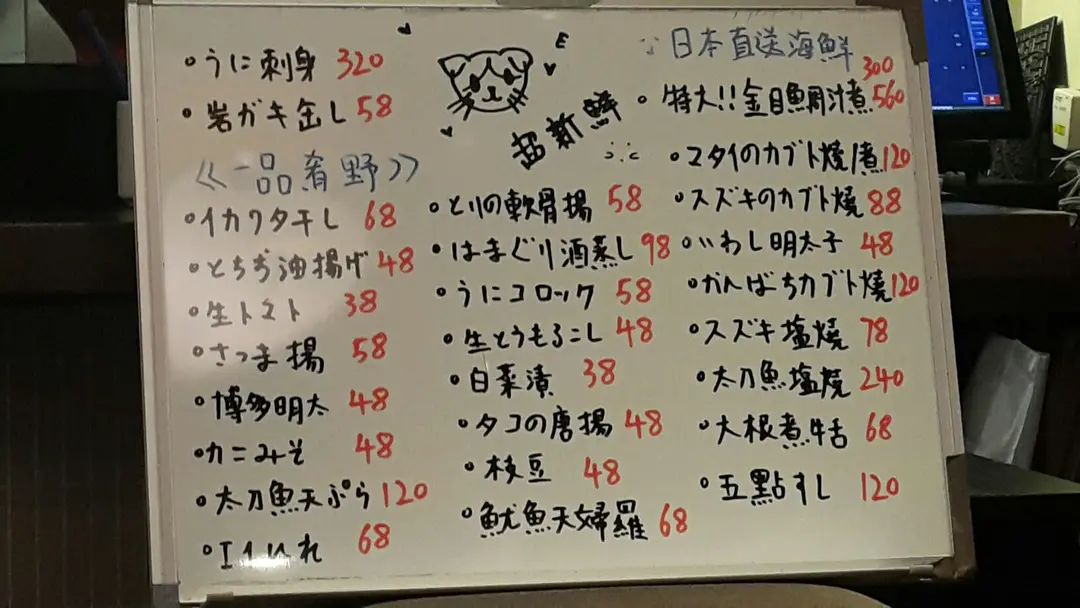 ・うに刺身 320
・岩ガキ缶し 58
《一品肴野》
・イカワタ干し 68
・とちぎ油揚げ 48
・生トマト 38
・さつま揚 58
・博多明太 48
・カニみそ 48
・太刀魚天ぷら 120
・エイひれ 68
超新鮮
・とりの軟骨揚 58
・はまぐり酒蒸し 98
・うにコロック 58
・生とうもろこし 48
・白菜漬 38
・タコの唐揚 48
・枝豆 48
・魷魚天婦羅 68
日本直送海鮮
300
・特大!!金目鯛汁煮 560
・マタイのカブト燒/煮 120
・スズキのカブト燒 88
・いわし明太子 48
・かんばちカブト燒 120
・スズキ塩燒 78
・太刀魚塩燒 240
・大根煮 68
・五點すし 120